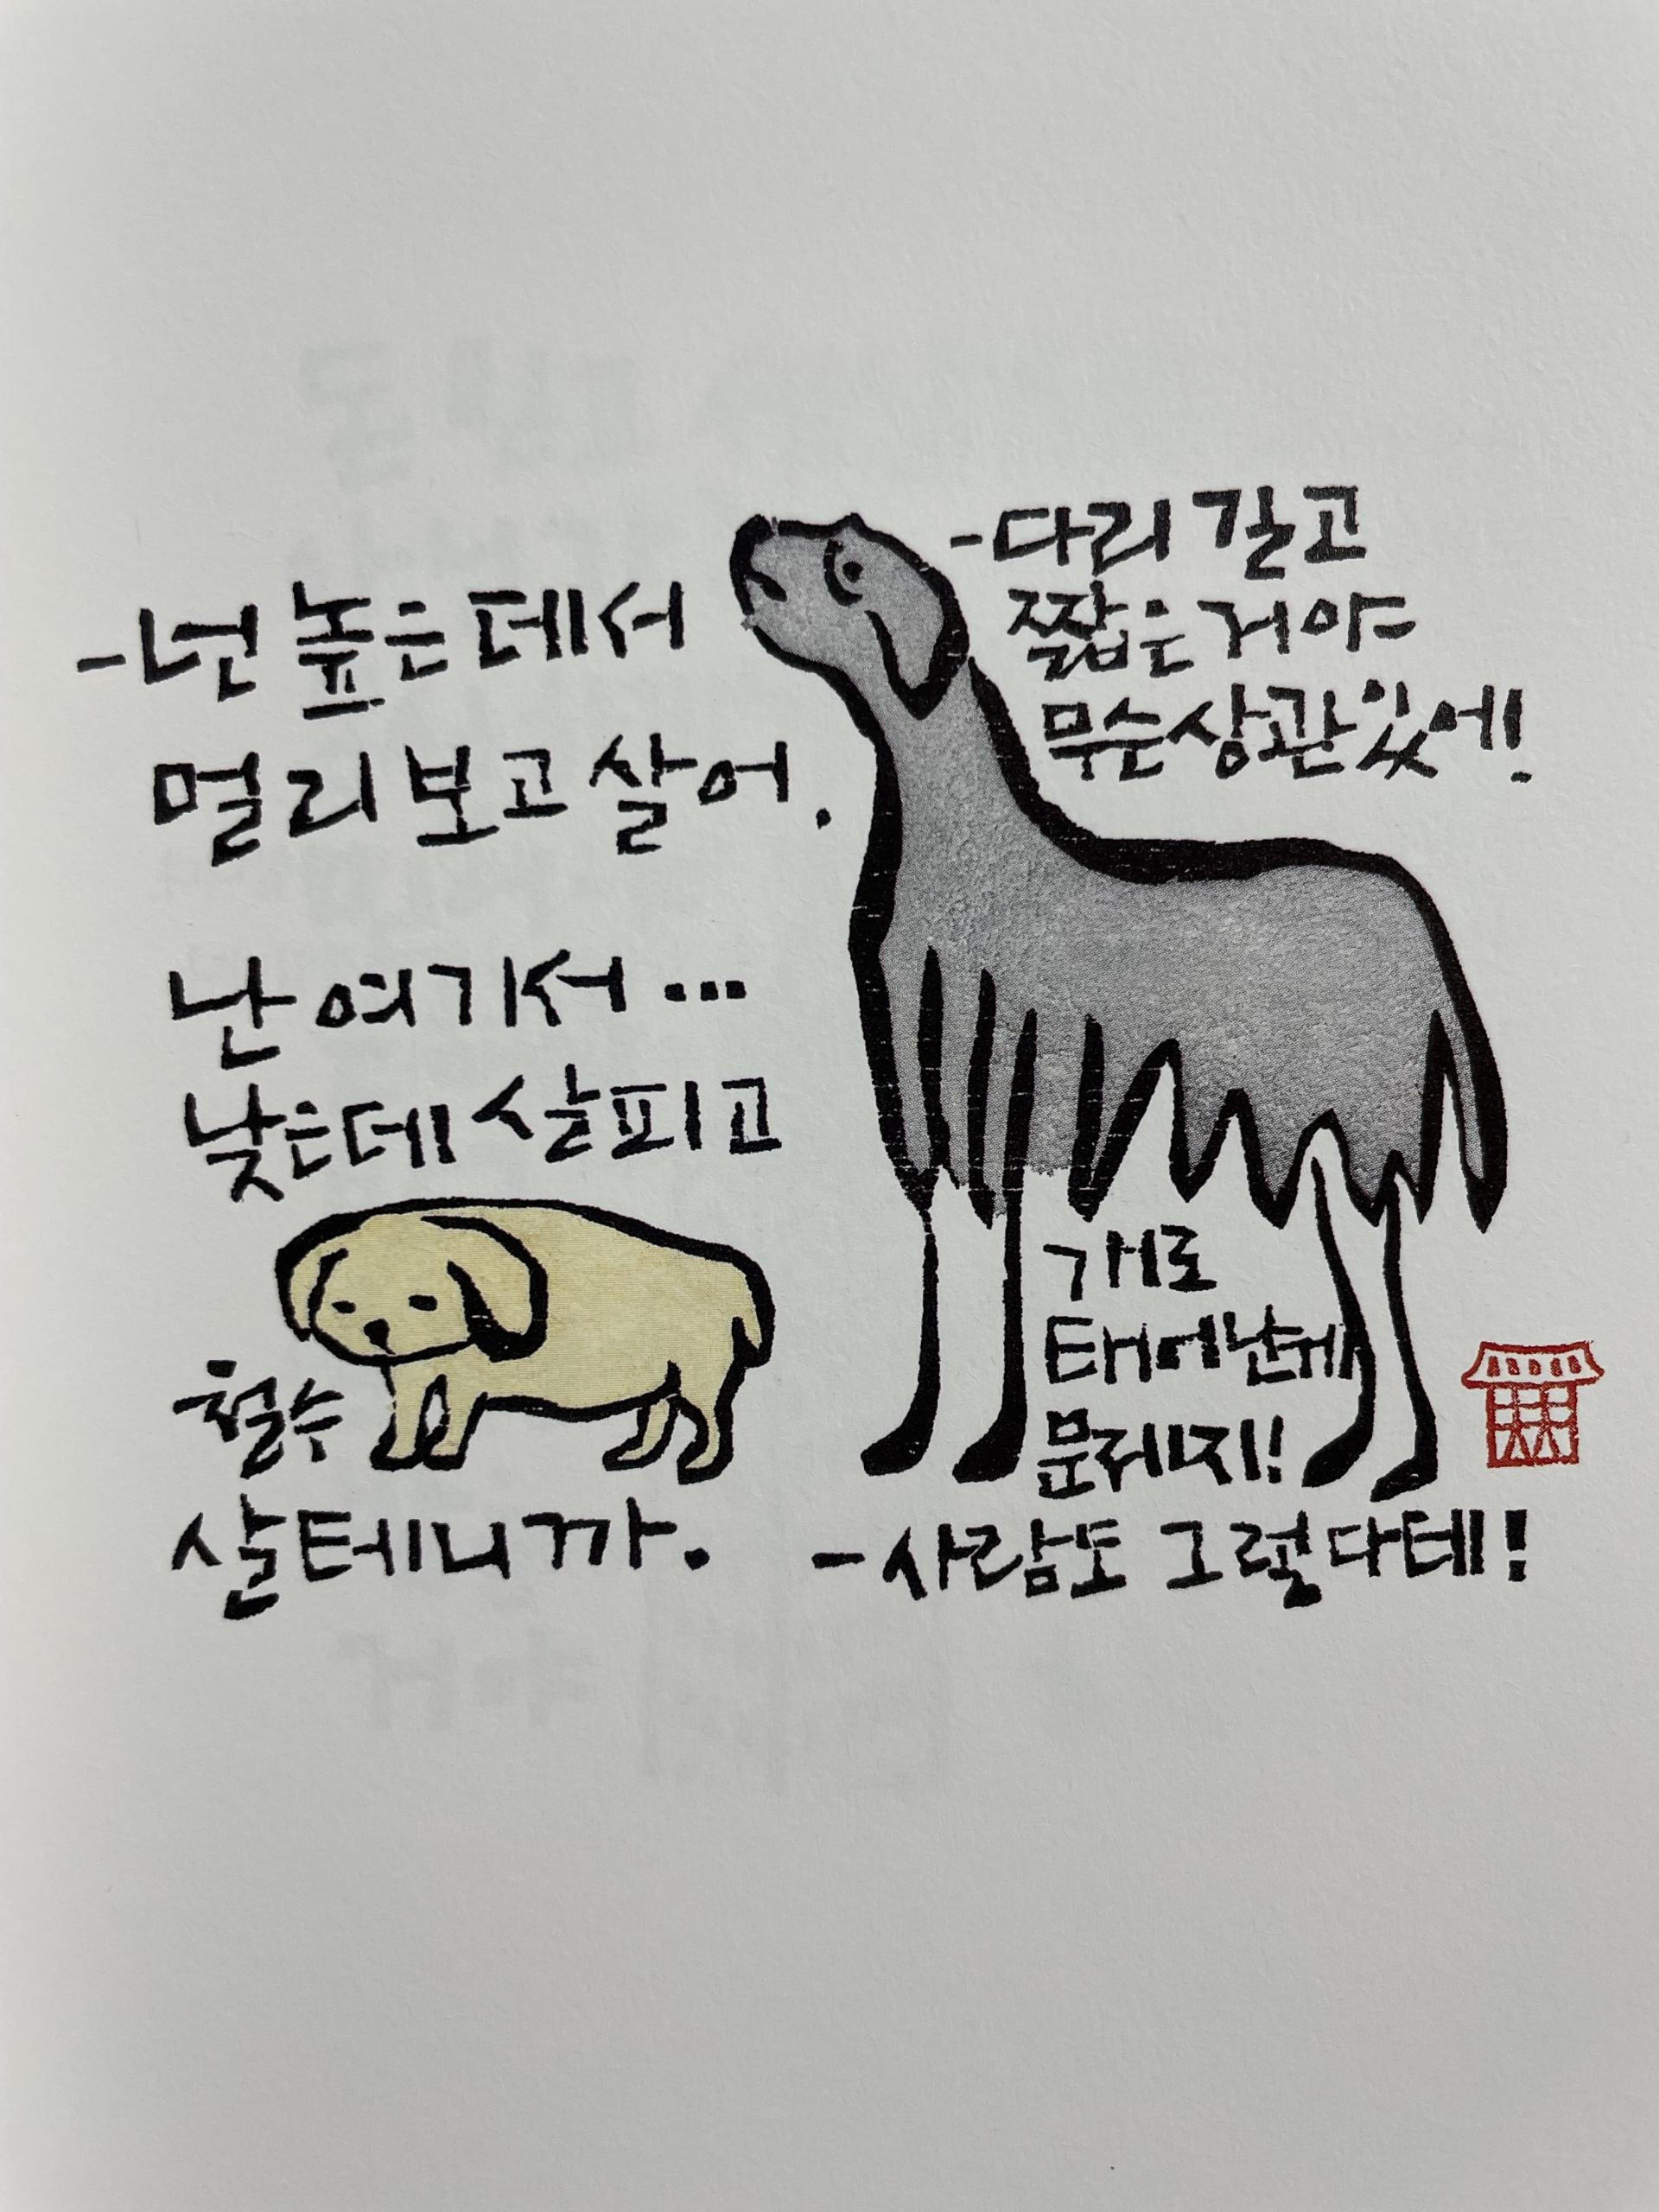 -넌 높은데서
멀리 보고 살어.
난 여기서...
낮은데 살피고
살테니까.
철수
-다리 길고
짧은거야
무순상관있어!
개로
태어난게
문제지!
-사람도 그렇다테!